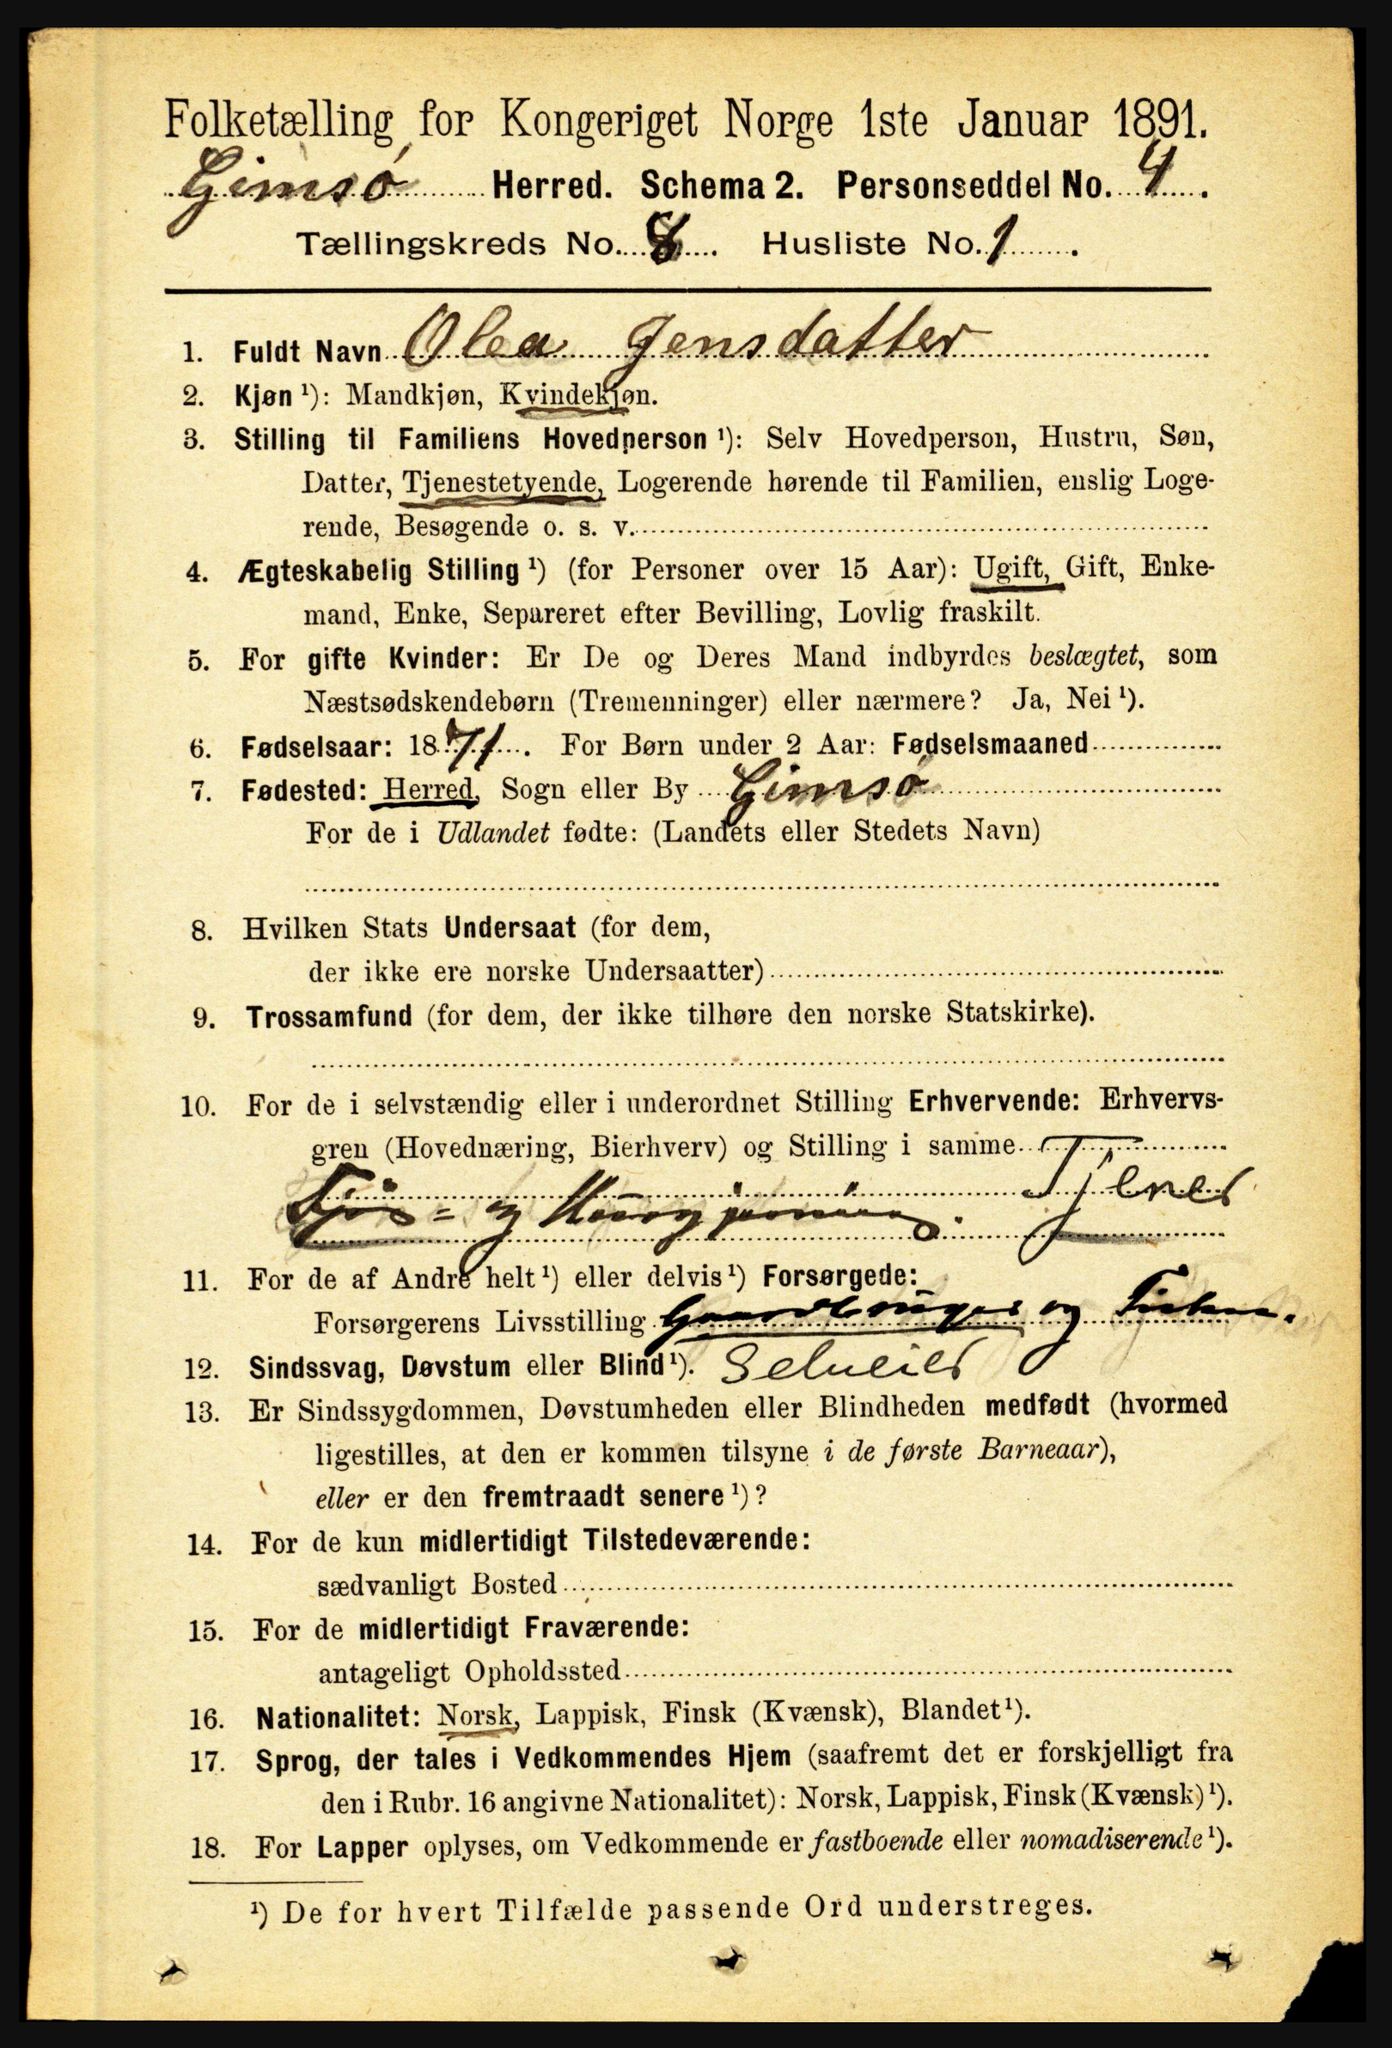 Folketælling for Kongeriget Norge 1ste Januar 1891.
Gimsø Herred. Schema 2. Personseddel No. 4.
Tællingskreds No. 8. Husliste No. 1.
1. Fuldt Navn Olea Jensdatter
2. Kjøn ¹): Mandkjøn, Kvindekjøn.
3. Stilling til Familiens Hovedperson ¹): Selv Hovedperson, Hustru, Søn,
Datter, Tjenestetyende, Logerende hørende til Familien, enslig Loge-
rende, Besøgende o. s. v.
4. Ægteskabelig Stilling ¹) (for Personer over 15 Aar): Ugift, Gift, Enke-
mand, Enke, Separeret efter Bevilling, Lovlig fraskilt.
5. For gifte Kvinder: Er De og Deres Mand indbyrdes beslægtet, som
Næstsødskendebørn (Tremenninger) eller nærmere? Ja, Nei ¹).
6. Fødselsaar: 1871. For Børn under 2 Aar: Fødselsmaaned
7. Fødested: Herred, Sogn eller By Gimsø
For de i Udlandet fødte: (Landets eller Stedets Navn)
8. Hvilken Stats Undersaat (for dem,
der ikke ere norske Undersaatter)
9. Trossamfund (for dem, der ikke tilhøre den norske Statskirke).
10. For de i selvstændig eller i underordnet Stilling Erhvervende: Erhvervs-
gren (Hovednæring, Bierhverv) og Stilling i samme
Fjøs- og Husgjerning. Tjener
11. For de af Andre helt ¹) eller delvis ¹) Forsørgede:
Forsørgerens Livsstilling Gaardbruger og Fisker.
12. Sindssvag, Døvstum eller Blind ¹). Selveier
13. Er Sindssygdommen, Døvstumheden eller Blindheden medfødt (hvormed
ligestilles, at den er kommen tilsyne i de første Barneaar),
eller er den fremtraadt senere ¹)?
14. For de kun midlertidigt Tilstedeværende:
sædvanligt Bosted
15. For de midlertidigt Fraværende:
antageligt Opholdssted
16. Nationalitet: Norsk, Lappisk, Finsk (Kvænsk), Blandet ¹).
17. Sprog, der tales i Vedkommendes Hjem (saafremt det er forskjelligt fra
den i Rubr. 16 angivne Nationalitet): Norsk, Lappisk, Finsk (Kvænsk) ¹).
18. For Lapper oplyses, om Vedkommende er fastboende eller nomadiserende ¹).
¹) De for hvert Tilfælde passende Ord understreges.